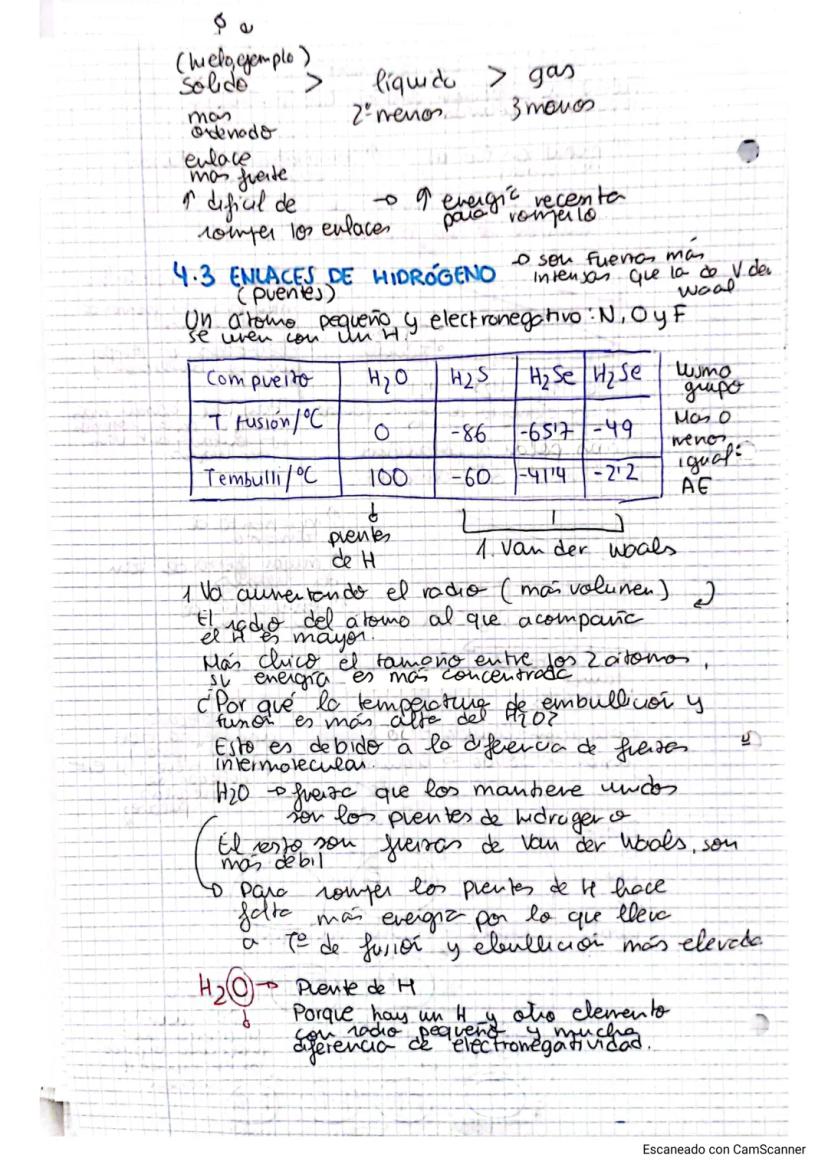 (hielo, ejemplo)
sólido > líquido > gas
más ordenado 2º menos. 3 menos
enlace
más fuerte
↑ dificil de → ↑ energía necesita
romper los enlaces para romperlo
4.3 ENLACES DE HIDRÓGENO → son fuerzas más
(puentes) intensas que la de V der
waal
Un átomo pequeño y electronegativo: N, O y F
se unen con un H.
Compuesto H2O H2S H2Se H2Se Mismo grupo
T. fusión/°C 0 -86 -65'7 -49 Mas o menos
Tembulli/°C 100 -60 -41'4 -2'2 igual: AE
puentes
de H 1. Van der Waals
1 Va aumentando el radio (más volumen)
El radio del átomo al que acompaña
el H es mayor.
Más chico el tamaño entre los 2 átomos,
su energía es más concentrada
¿Por qué la temperatura de embullición y
fusión es más alta del H2O?
Esto es debido a la diferencia de fuerzas
intermolecular.
H2O → fuerza que los mantiene unidos
son los puentes de hidrogeno
El resto son fuerzas de Van der Waals, son
más débil
→ Para romper los puentes de H hace
falta más energía por lo que lleva
a Tª de fusión y ebullición más elevada
H2O → Puente de H
Porque hay un H y otro elemento
con radio pequeño y mucha
diferencia de electronegatividad.
Escaneado con CamScanner